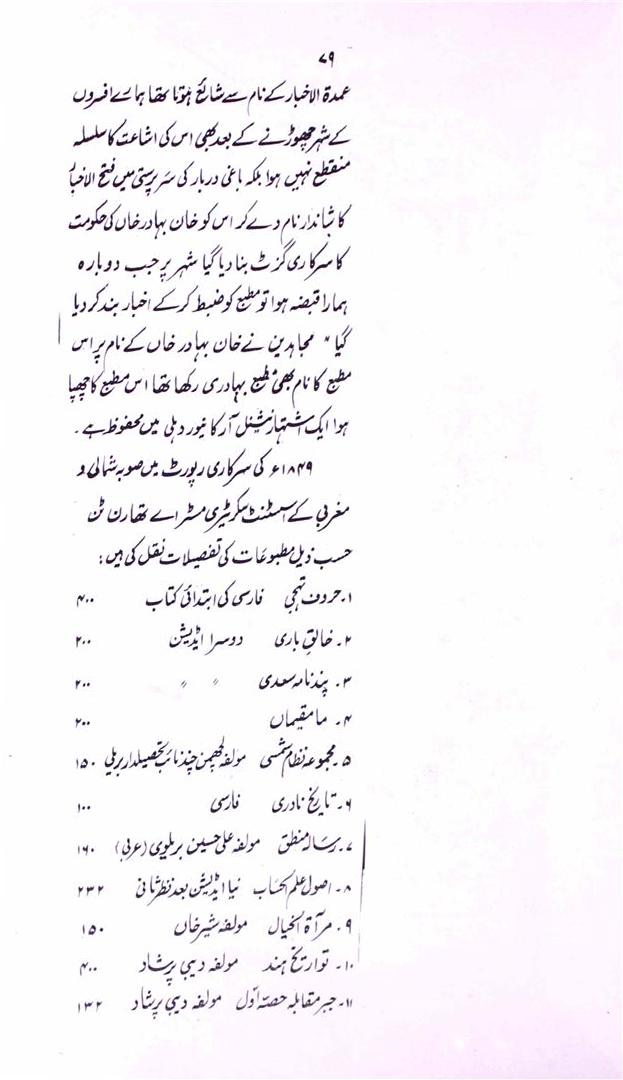 ۷۹
عمدۃ الاخبار کے نام سے شائع ہوتا تھا ہمارے افسروں
کے شہر چھوڑنے کے بعد بھی اس کی اشاعت کا سلسلہ
منقطع نہیں ہوا بلکہ باغی دربار کی سرپرستی میں فتح الاخبار
کا شاندار نام دے کر اس کو خان بہادر خاں کی حکومت
کا سرکاری گزٹ بنا دیا گیا شہر پر جب دوبارہ
ہمارا قبضہ ہوا تو مطبع کو ضبط کرکے اخبار بند کر دیا
گیا " مجاہدین نے خان بہادر خاں کے نام پر اس
مطبع کا نام بھی مطبع بہادری رکھا تھا اس مطبع کا چھپا
ہوا ایک اشتہار نیشنل آرکائیوز دہلی میں محفوظ ہے۔
۱۸۴۹ء کی سرکاری رپورٹ میں صوبہ شمالی و
مغربی کے اسسٹنٹ سکرٹیری مسٹر اے تھارن ٹن
حسب ذیل مطبوعات کی تفصیلات نقل کی ہیں:
۱۔ حروف تہجی فارسی کی ابتدائی کتاب ۴۰۰
۲۔ خالق باری دوسرا ایڈیشن ۲۰۰
۳۔ پندنامہ سعدی " " ۲۰۰
۴۔ مامقیماں ۲۰۰
۵۔ مجموعہ نظام شمسی مولفہ لچھمن چند نائب تحصیلدار بریلی ۱۵۰
۶۔ تاریخ نادری فارسی ۱۰۰
۷۔ رسالہ منطق مولفہ علی حسین بریلوی (عربی) ۱۶۰
۸۔ اصول علم الحساب نیا ایڈیشن بعد نظرثانی ۲۳۲
۹۔ مرآۃ الخیال مولفہ شیر خاں ۱۵۰
۱۰۔ تواریخ ہند مولفہ دیبی پرشاد ۴۰۰
۱۱۔ جبر مقابلہ حصہ اوّل مولفہ دیبی پرشاد ۱۳۲